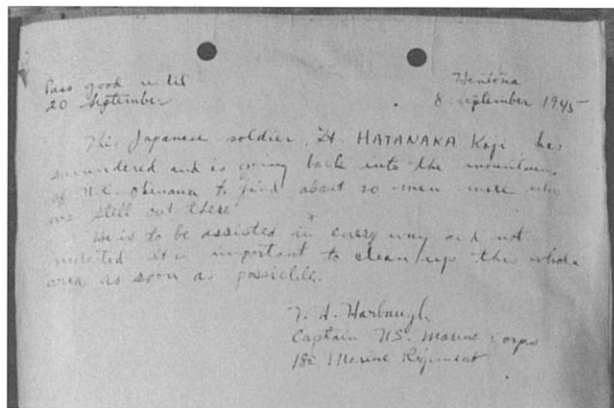 Pass good until
20 September
Hentona
8 september 1945
This Japanese soldier, Lt. HATANAKA Koji has
surrendered and is going back into the mountains
of N.E. Okinawa to find about 20 men more who
are still out there.
He is to be assisted in every way and not
molested. It is important to clean up the whole
area as soon as possible.
Harbaugh
Captain U.S. Marine Corps
Marine Regiment